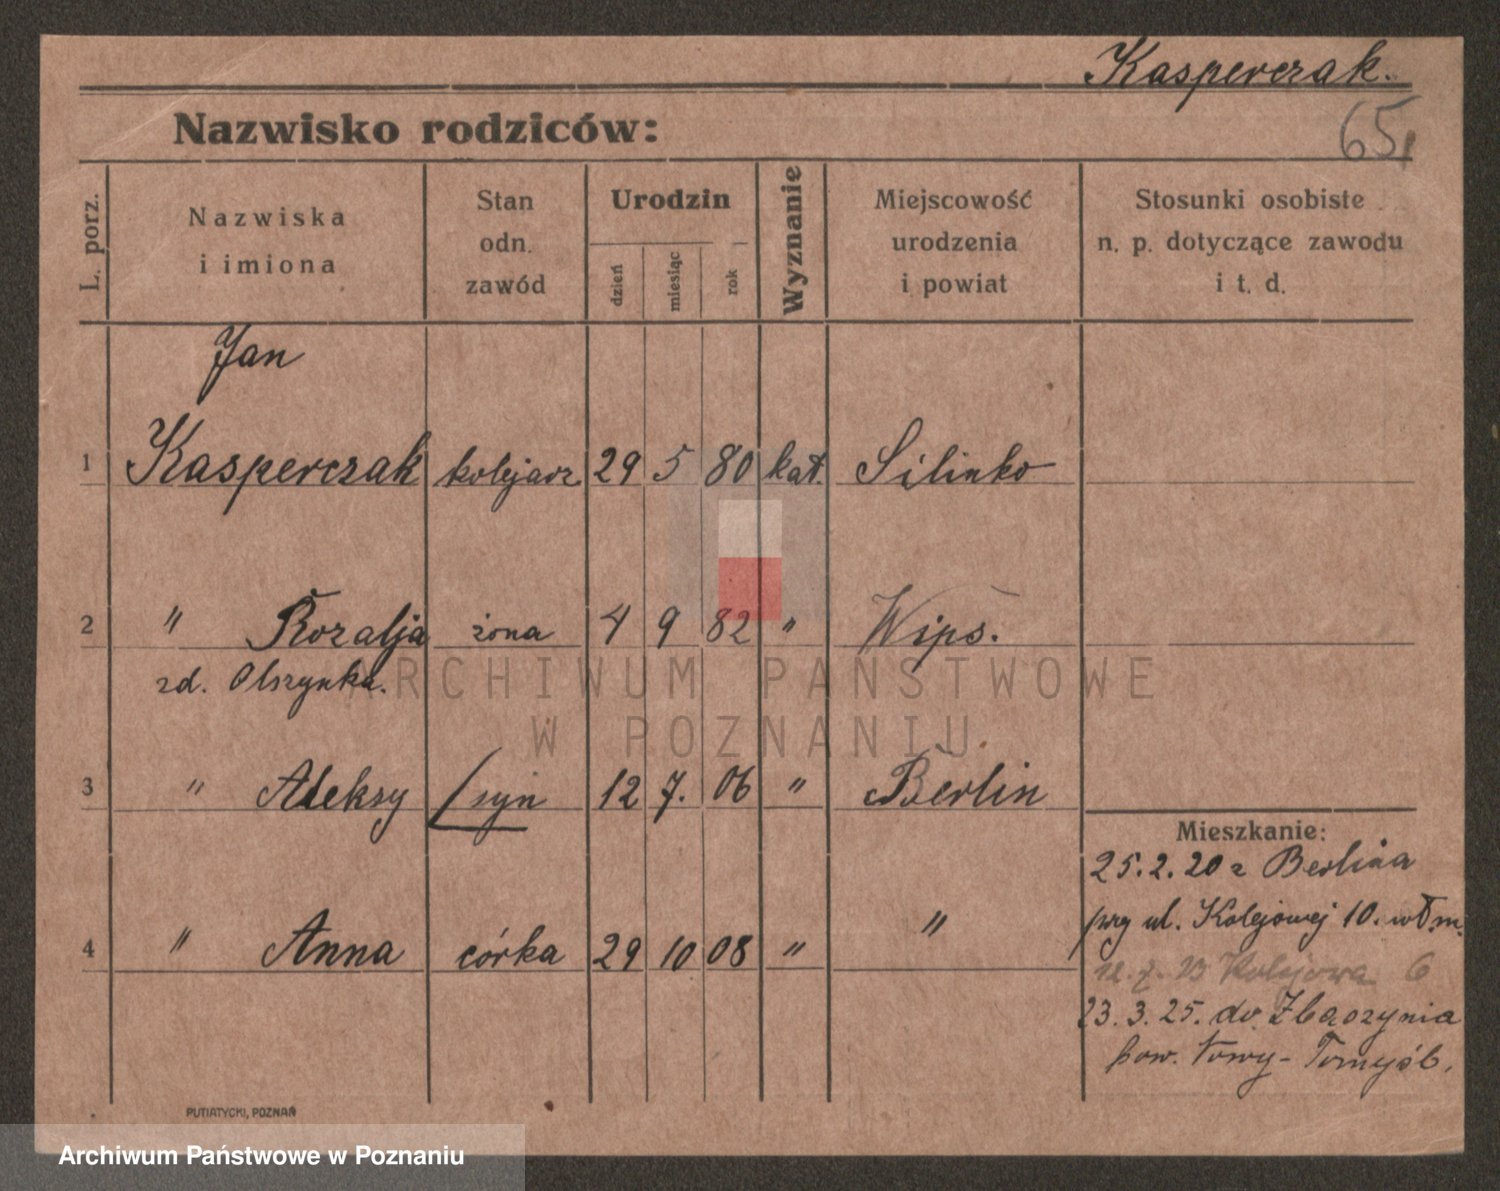 Kasperczak.
65
Nazwisko rodziców:
L. porz.
Nazwiska
i imiona
Stan
odn.
zawód
Urodzin
dzień
miesiąc
rok
Wyznanie
Miejscowość
urodzenia
i powiat
Stosunki osobiste
n. p. dotyczące zawodu
i t. d.
Jan
1 Kasperczak kolejarz 29 5 80 kat. Silinko
2 " Rozalja żona 4 9 82 " Wips.
zd. Olszynka.
ARCHIWUM PAŃSTWOWE
W POZNANIU
3 " Aleksy syn 12 7. 06 " Berlin
Mieszkanie:
25.2.20 z Berlina
4 " Anna córka 29 10 08 " "
ul. Kolejowej 10.
Kolejowa 6
23.3.25. do Zbączynia
pow. Nowy-Tomyśl.
PUTIATYCKI, POZNAŃ
Archiwum Państwowe w Poznaniu